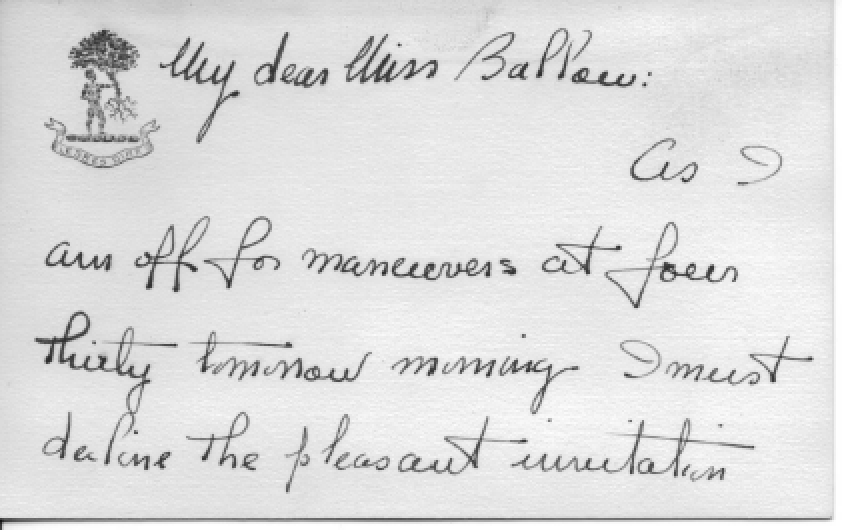 My dear Miss Ballou:
As I
am off for maneuvers at four
thirty tomorrow morning I must
decline the pleasant invitation